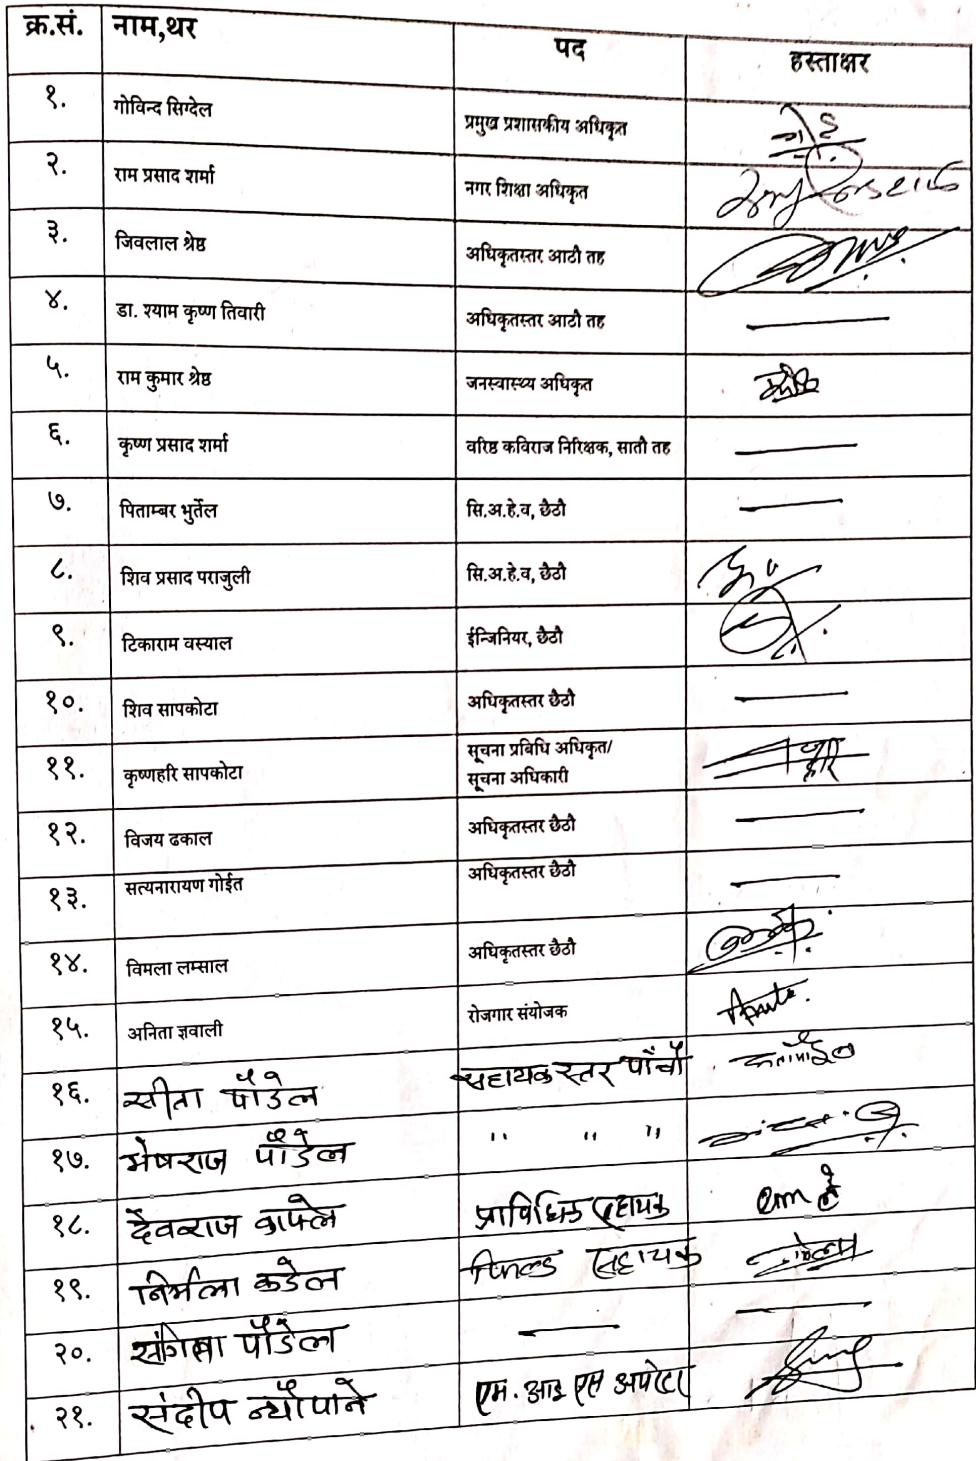 क्र.सं. नाम,थर पद हस्ताक्षर
१. गोविन्द सिग्देल प्रमुख प्रशासकीय अधिकृत
२. राम प्रसाद शर्मा नगर शिक्षा अधिकृत
३. जिवलाल श्रेष्ठ अधिकृतस्तर आठौ तह
४. डा. श्याम कृष्ण तिवारी अधिकृतस्तर आठौ तह
५. राम कुमार श्रेष्ठ जनस्वास्थ्य अधिकृत
६. कृष्ण प्रसाद शर्मा वरिष्ठ कविराज निरिक्षक, सातौ तह
७. पिताम्बर भुर्तेल सि.अ.हे.व, छैठौ
८. शिव प्रसाद पराजुली सि.अ.हे.व, छैठौ
९. टिकाराम वस्याल ईन्जिनियर, छैठौ
१०. शिव सापकोटा अधिकृतस्तर छैठौ
११. कृष्णहरि सापकोटा सूचना प्रबिधि अधिकृत/
सूचना अधिकारी
१२. विजय ढकाल अधिकृतस्तर छैठौ
१३. सत्यनारायण गोईत अधिकृतस्तर छैठौ
१४. विमला लम्साल अधिकृतस्तर छैठौ
१५. अनिता ज्ञवाली रोजगार संयोजक
१६. सीता पौडेल सहायक स्तर पाँचौ
१७. मेषराज पौडेल " " "
१८. देवराज काफ्ले प्राविधिक सहायक
१९. निर्मला कडेल फिल्ड सहायक
२०. पौडेल
२१. संदीप न्यौपाने एम. आइ एस अपरेटर